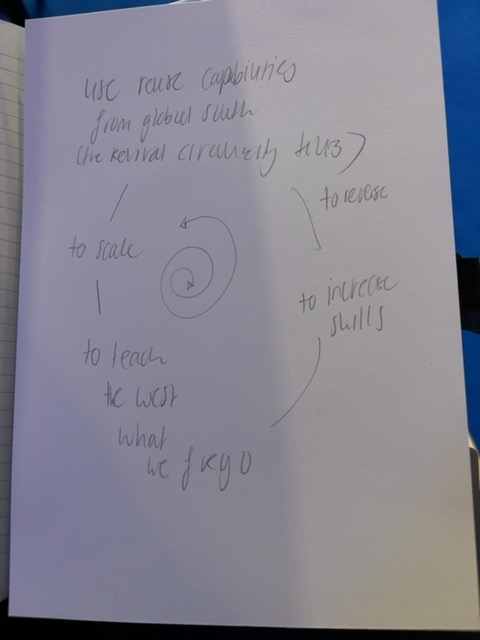 use reuse capabilities
from global south
(the revival circularity hubs)
to reverse
to scale
to increase
skills
to teach
the west
what
we forgo